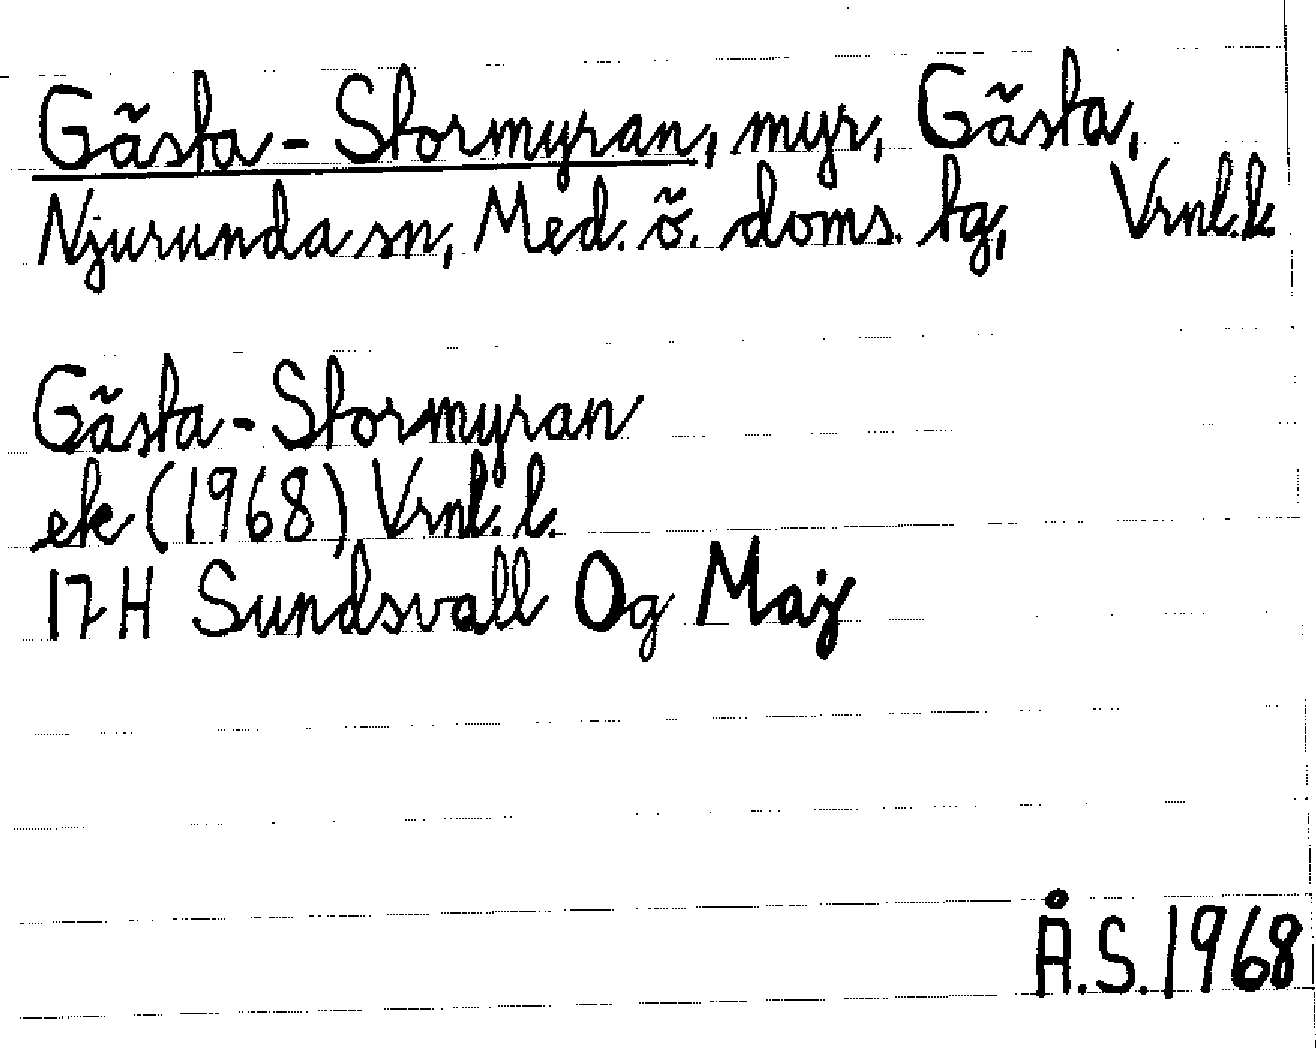 Gästa - Stormyran, myr, Gästa,
Njurunda sn, Med. ö. doms. tg, Vrnl.k.
Gästa - Stormyran
ek (1968) Vrnl. l.
17H Sundsvall Og Maj
Å.S. 1968